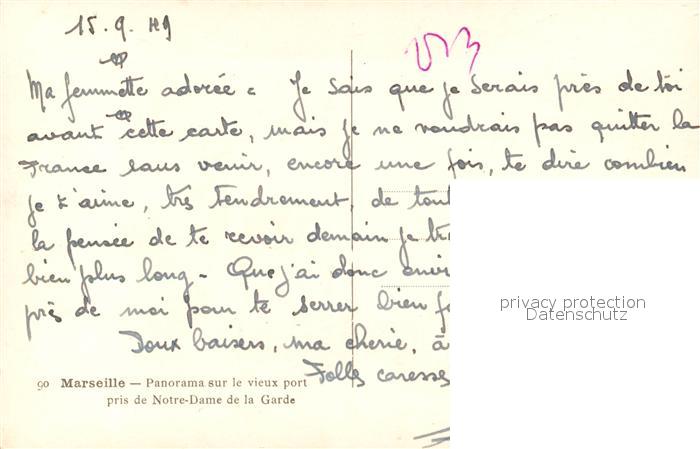 15.9.49
Ma femmette adorée : Je sais que je serais près de toi
avant cette carte, mais je ne voudrais pas quitter la
France sans venir, encore une fois, te dire combien
je t'aime, très tendrement, de tout
la pensée de te revoir demain je
bien plus long - Que j'ai donc
près de moi pour te serrer bien
Doux baisers, ma cherie, à
Folles caresses
90 Marseille — Panorama sur le vieux port
pris de Notre-Dame de la Garde
privacy protection
Datenschutz